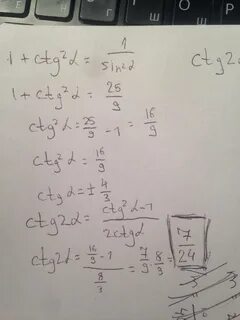 1 + ctg²α = 1/sin²α
ctg2
1 + ctg²α = 25/9
ctg²α = 25/9 - 1 = 16/9
ctg²α = 16/9
ctgα = ± 4/3
ctg2α = ctg²α-1/2ctgα
ctg2α = 16/9 - 1/8/3 = 7/9 · 8/3 = 7/24